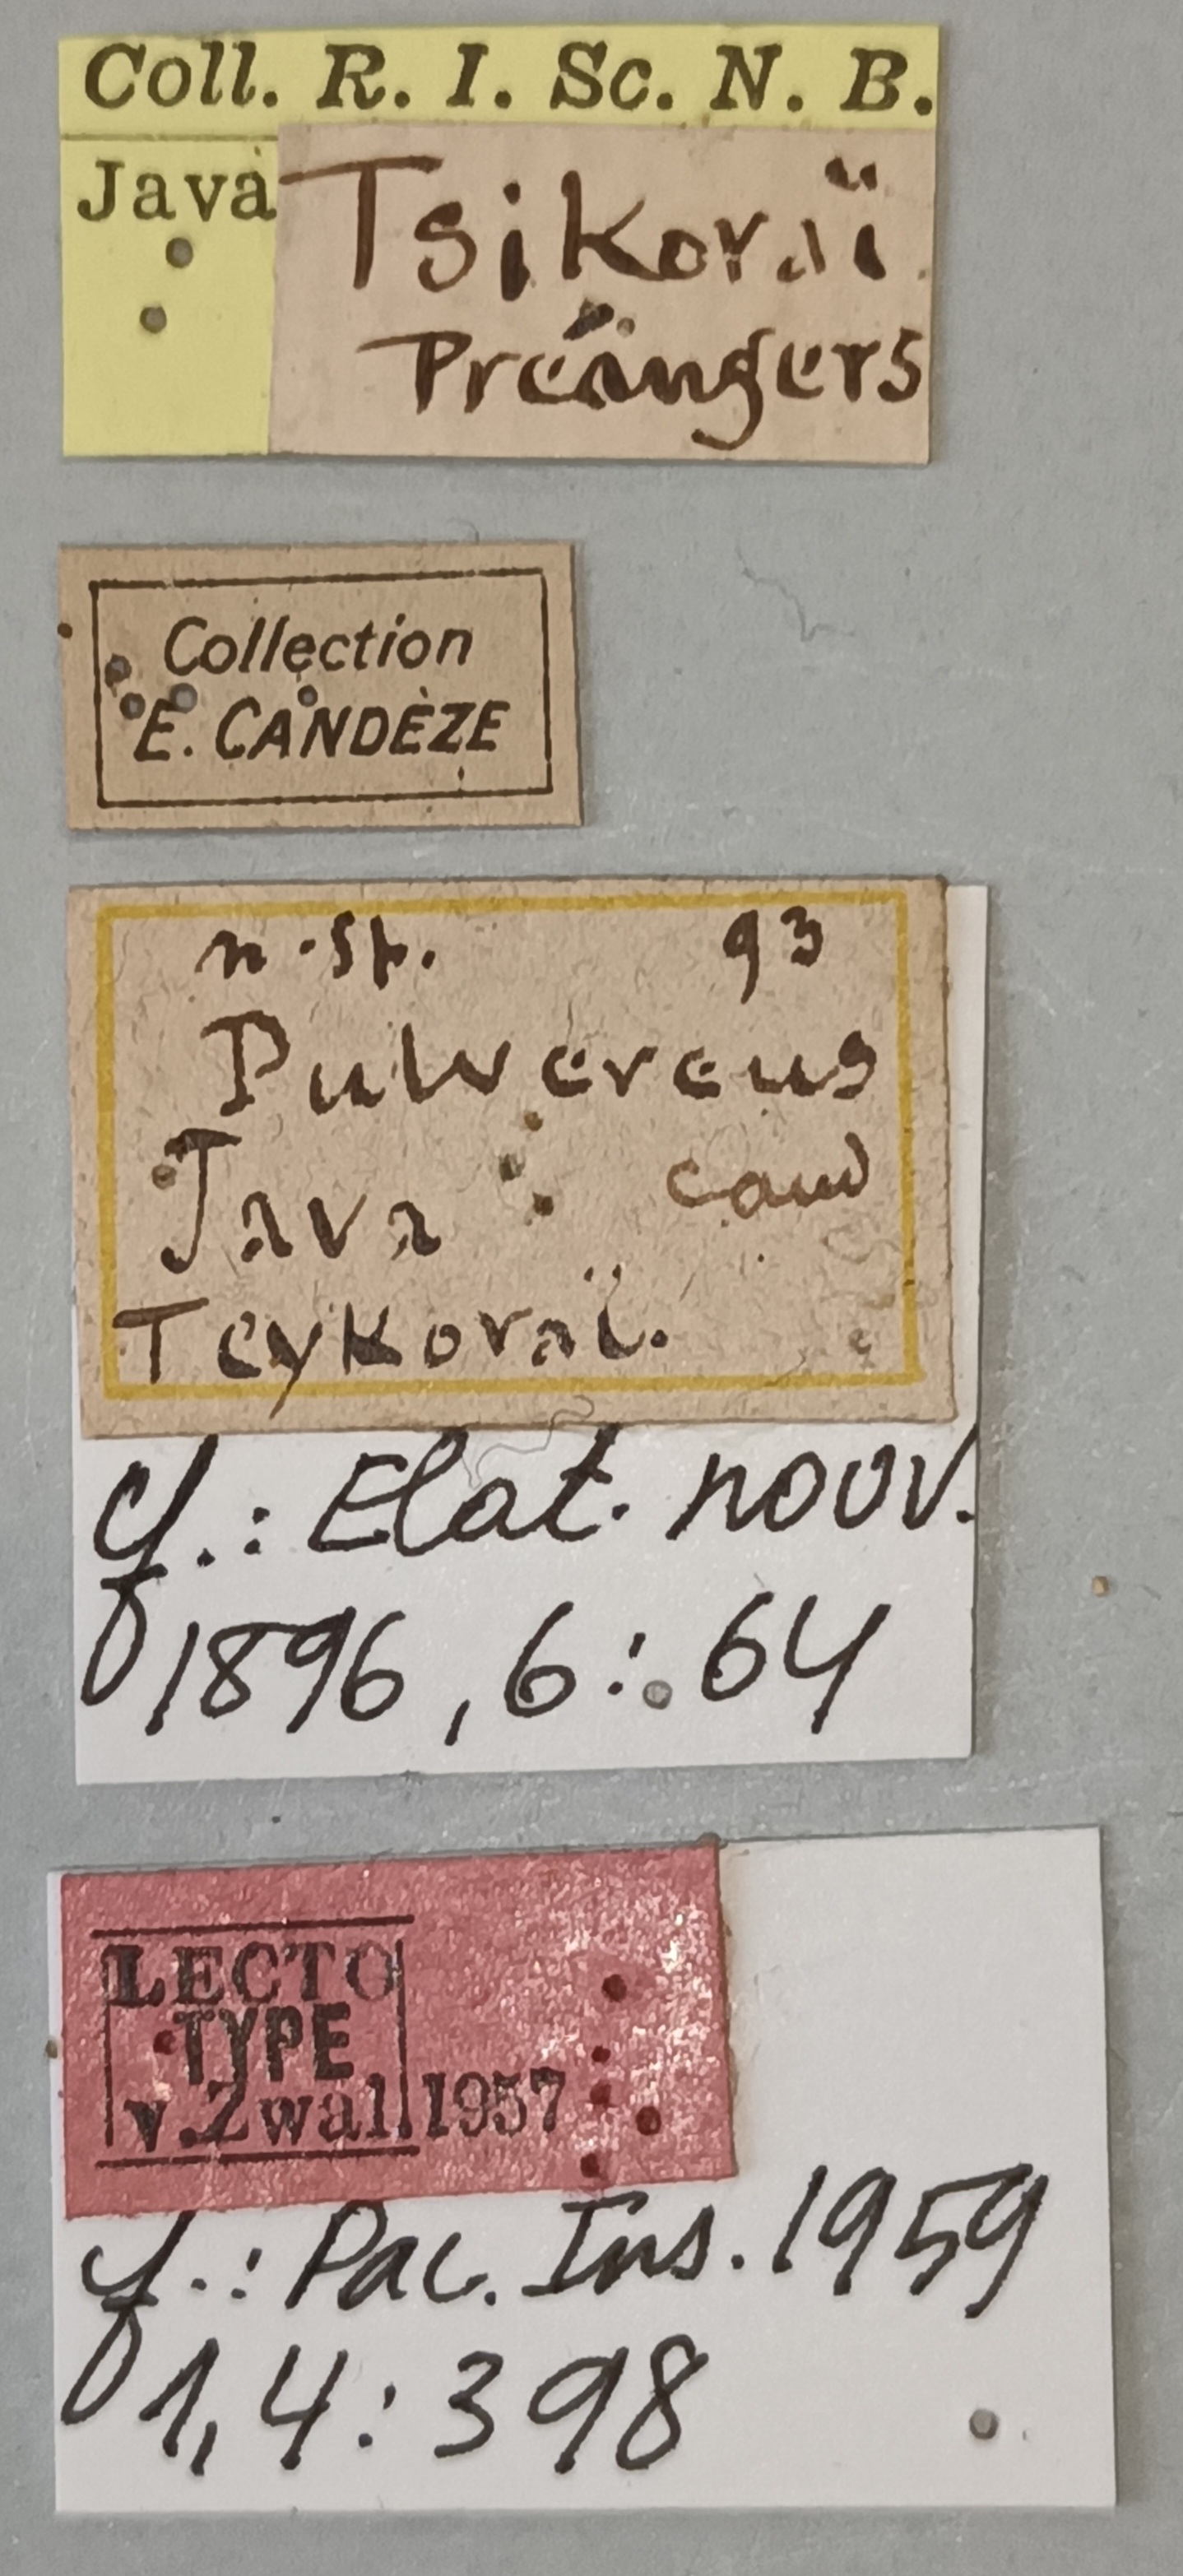 Coll. R. I. Sc. N. B.
Java
Tsikoraï
Préangers
Collection
E. CANDÈZE
n. sp. 93
Pulvereus
Java cand
Tcykoraï.
cf.: Elat. nouv.
1896, 6: 64
LECTO
TYPE
v. Zwal. 1957
cf.: Pac. Ins. 1959
1, 4: 398